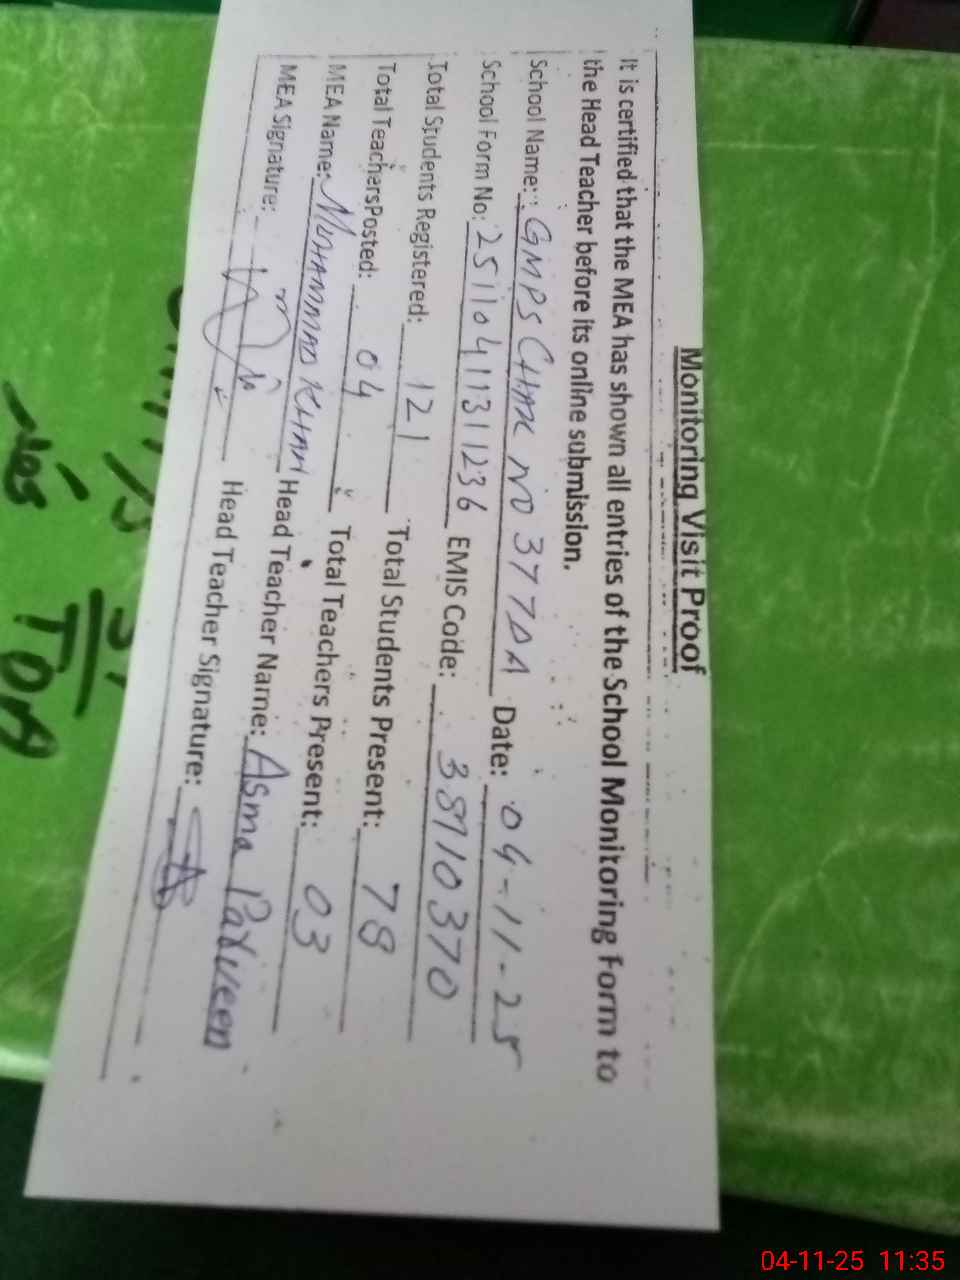 Monitoring Visit Proof
It is certified that the MEA has shown all entries of the School Monitoring Form to
the Head Teacher before its online submission.
School Name: GMPS CHAK NO 377DA Date: 04-11-25
School Form No: 25110411311236 EMIS Code: 38910370
Total Students Registered: 121 Total Students Present: 78
Total TeachersPosted: 04 Total Teachers Present: 03
MEA Name: MUHAMMAD KHAN Head Teacher Name: Asma Parveen
MEA Signature: Head Teacher Signature:
04-11-25 11:35